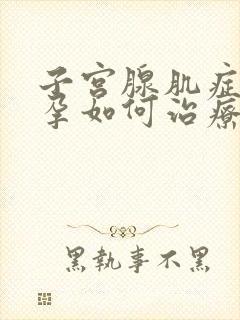 子宫腺肌症
孕如何治療
黑執事不黑